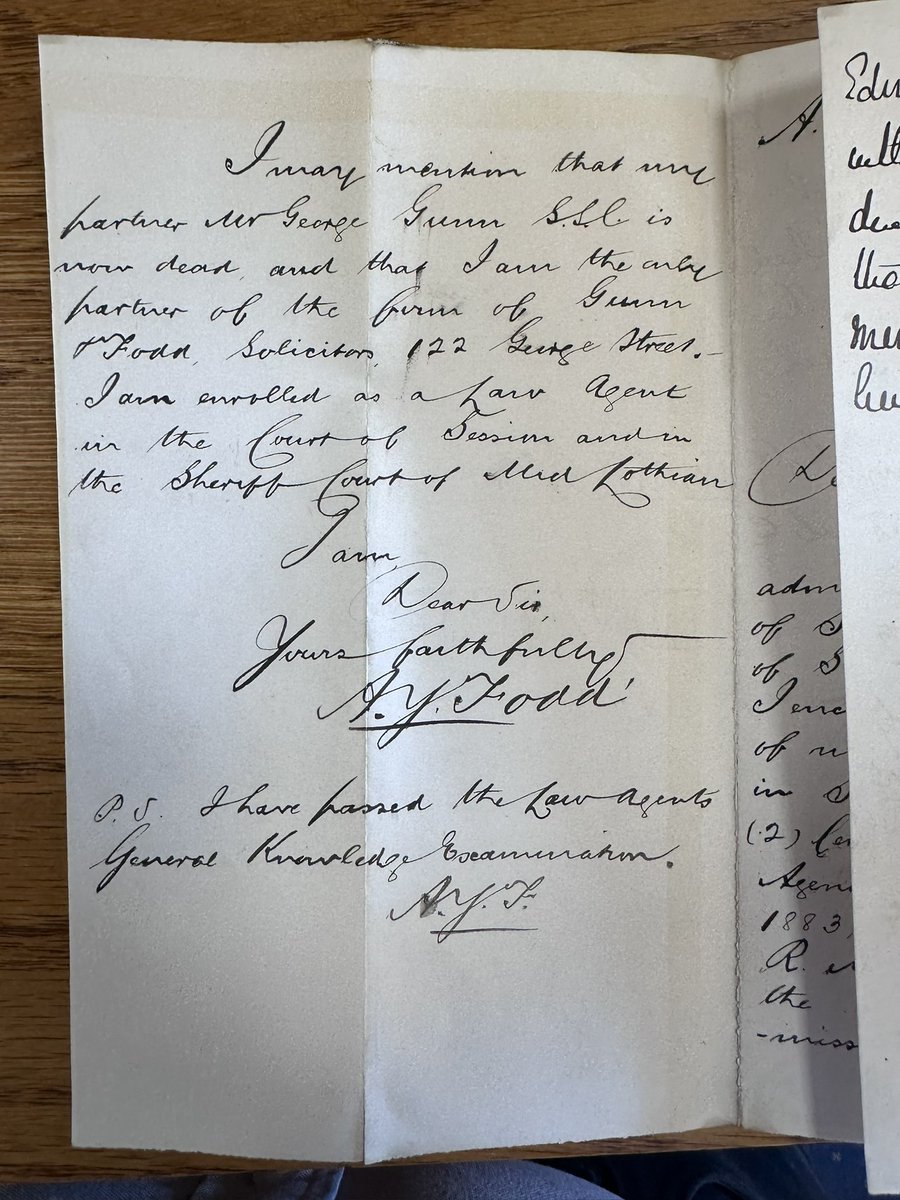 I may mention that my
partner Mr George Gunn S.S.C. is
now dead, and that I am the only
partner of the firm of Gunn
& Fodd, Solicitors, 122 George Street.–
I am enrolled as a Law Agent
in the Court of Session and in
the Sheriff Court of Mid Lothian
I am,
Dear Sir,
Yours faithfully
A.Y. Fodd
P.S. I have passed the Law Agents
General Knowledge Examination.
A.Y.F.
A.
adm
of S
of S
I enc
of
in S
(2) Cer
Agen
1883,
R.
the
-miss
Edin
the